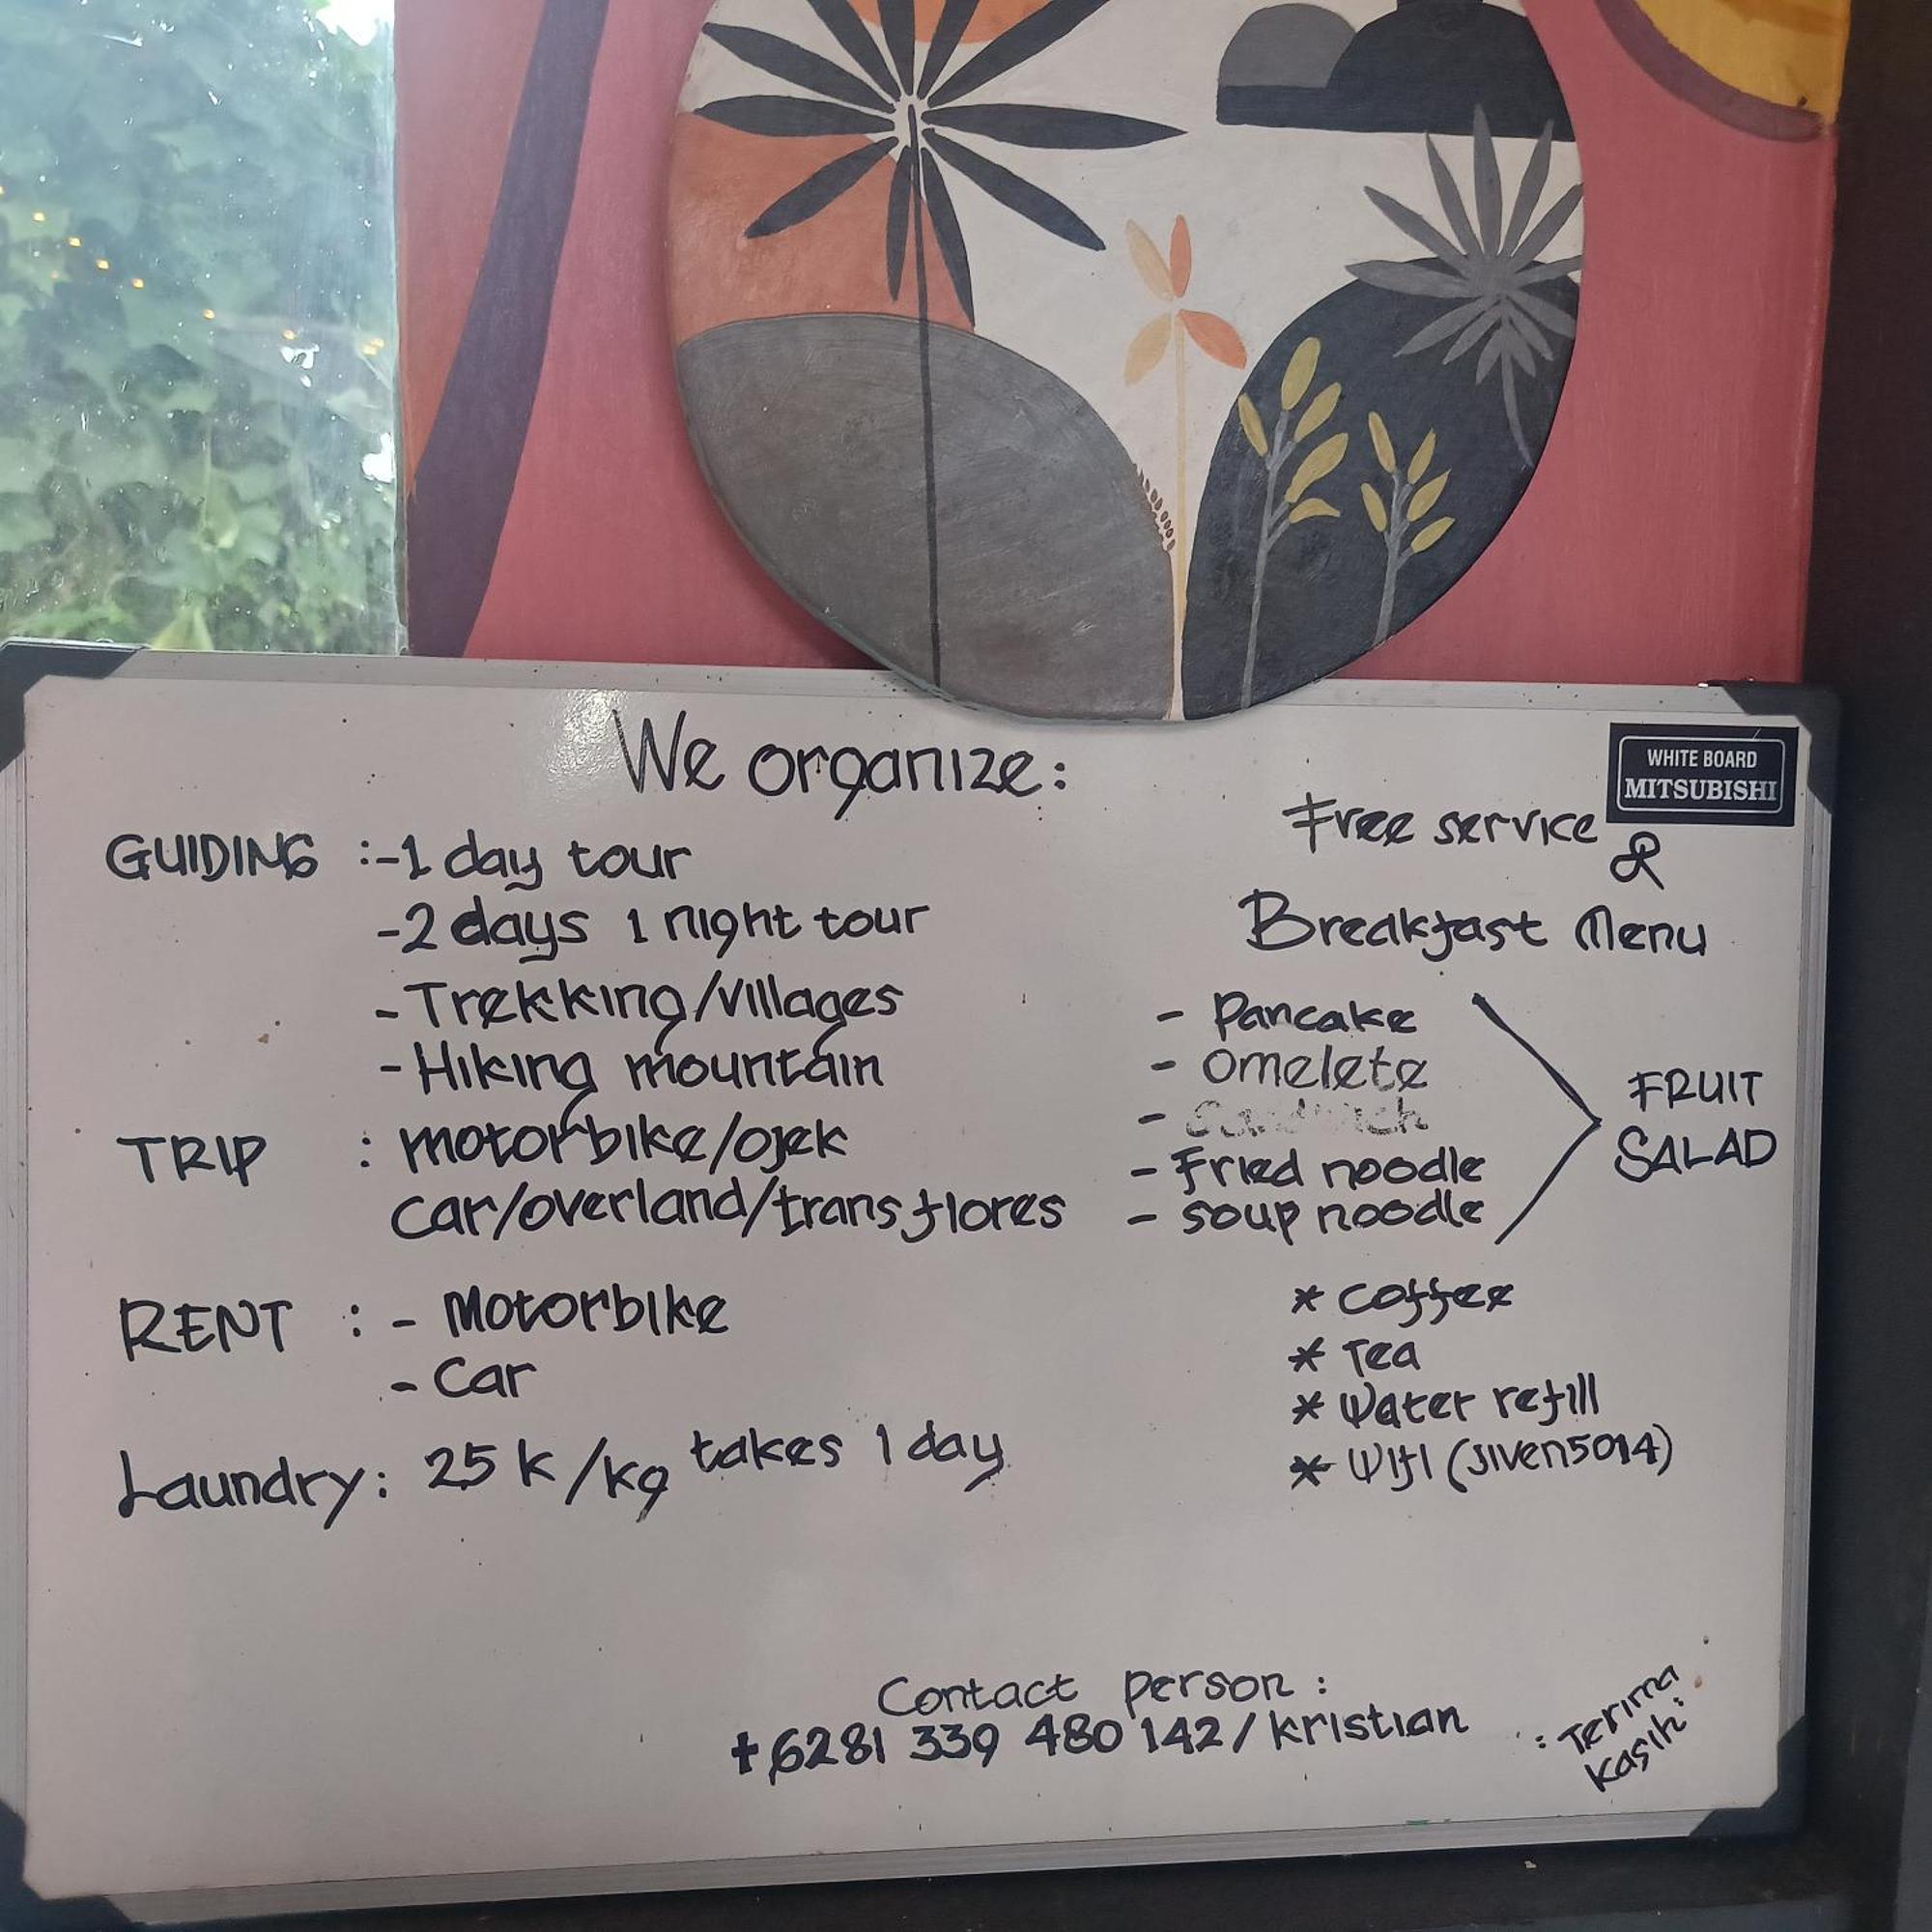 We organize:
GUIDING :-1 day tour
-2 days 1 night tour
- Trekking/villages
- Hiking mountain
TRIP : motorbike/ojek
car/overland/trans flores
RENT : - Motorbike
- Car
Laundry: 25 k/kg takes 1 day
WHITE BOARD
MITSUBISHI
Free service
&
Breakfast Menu
- Pancake
- Omelete
- Sandwich
- Fried noodle
- soup noodle
FRUIT
SALAD
* Coffee
* Tea
* Water refill
* Wifi (Jiven5014)
Contact person :
+6281 339 480 142/kristian
: Terima
kasih :